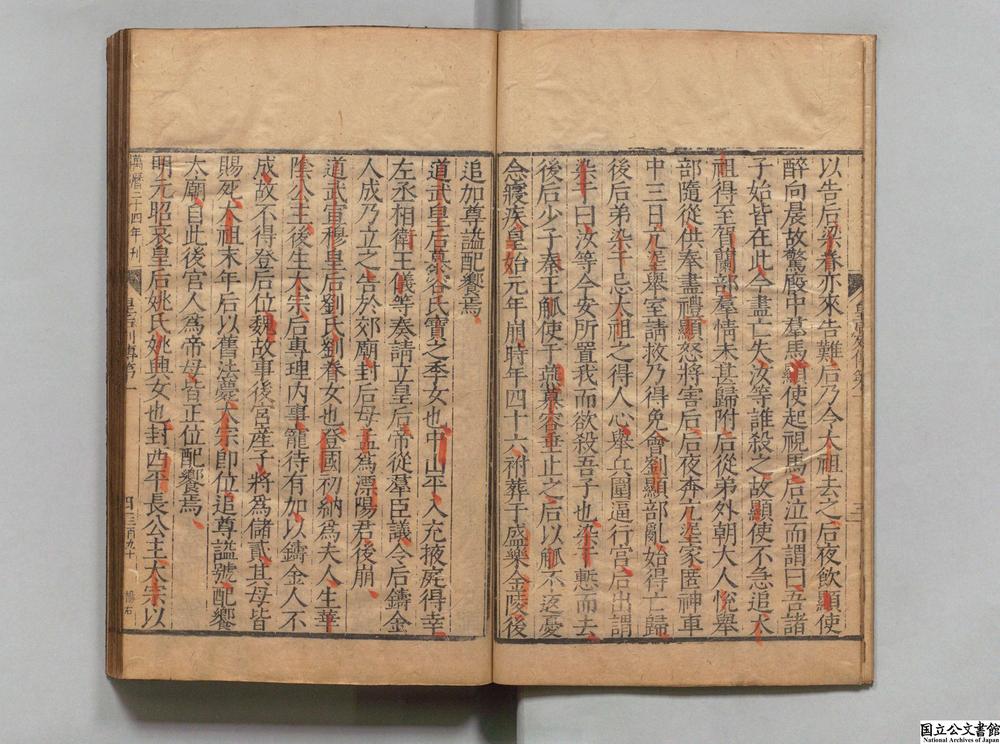 以告后梁眷亦來告難后乃令太祖去之后夜飲顯使
醉向晨故驚廄中羣馬顯使起視馬后泣而謂曰吾諸
子始皆在此今盡亡失汝等誰殺之故顯使不急追太
祖得至賀蘭部羣情未甚歸附后從弟外朝大人悅舉
部隨從供奉盡禮顯怒將害后后夜奔亢埿家匿神車
中三日亢埿舉室請救乃得免會劉顯部亂始得亡歸
後后弟染干忌太祖之得人心舉兵圍逼行宮后出謂
染干曰汝等今安所置我而欲殺吾子也染干慙而去
後后少子秦王觚使于燕慕容垂止之后以觚不返憂
念寢疾皇始元年崩時年四十六祔葬于盛樂金陵後
追加尊謚配饗焉
道武皇后慕容氏寶之季女也中山平入充掖庭得幸
左丞相衛王儀等奏請立皇后帝從羣臣議令后鑄金
人成乃立之告於郊廟封后母孟爲漂陽君後崩
道武宣穆皇后劉氏劉眷女也登國初納爲夫人生華
陰公主後生太宗后專理內事寵待有加以鑄金人不
成故不得登后位魏故事後宮產子將爲儲貳其母皆
賜死太祖末年后以舊法薨太宗即位追尊謚號配饗
太廟自此後宮人爲帝母皆正位配饗焉
明元昭哀皇后姚氏姚興女也封西平長公主太宗以
萬曆二十四年刊
皇后列傳第一
四
三百九十
國立公文書館
National Archives of Japan